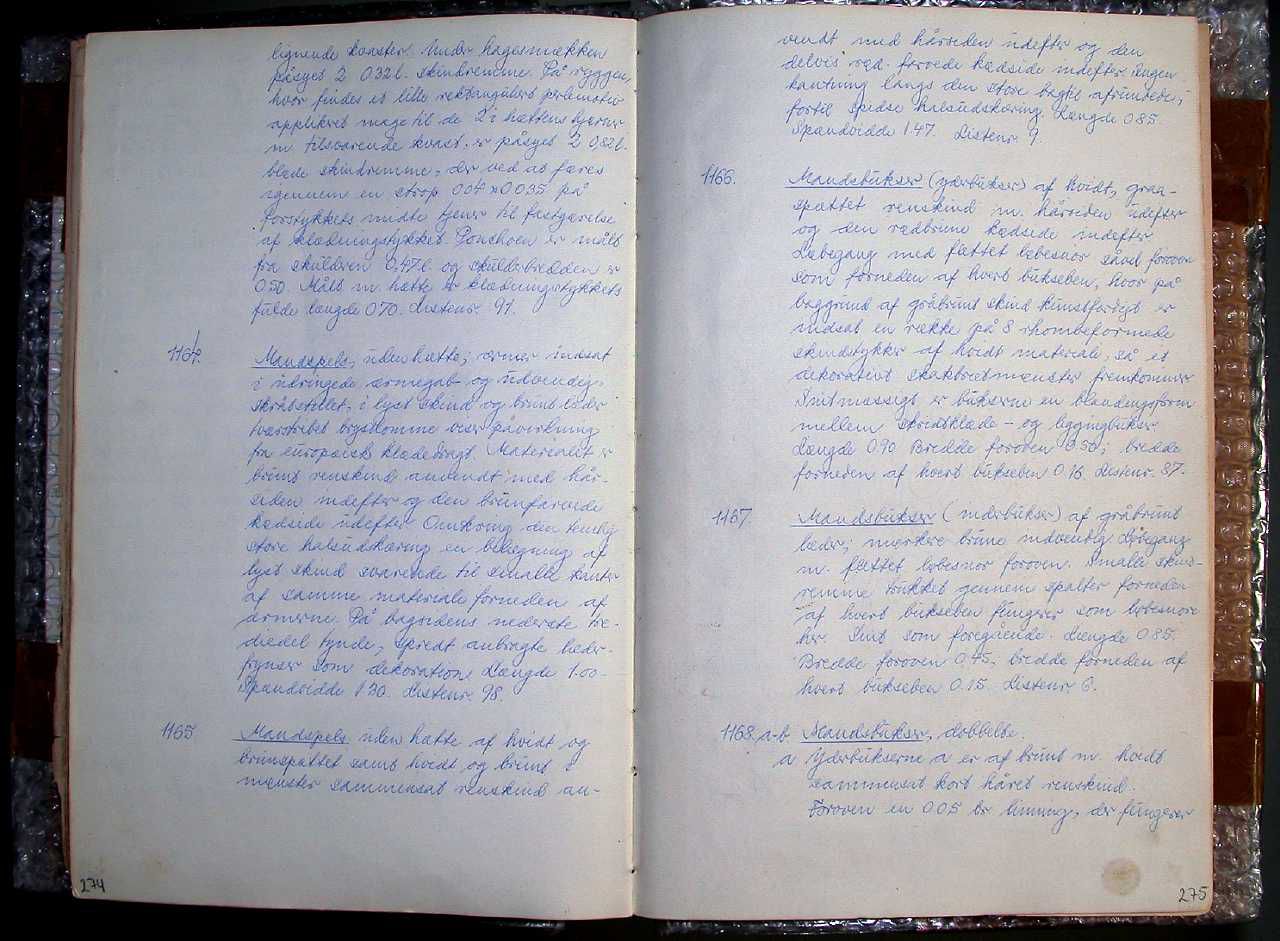 lignende kvaster. Under hagesmækken
påsyes 2 0.32 l. skindremme. På ryggen,
hvor findes et lille rektangulært perlemotiv
appliceret mage til de 2 i hættens hjørner
m. tilsvarende kvast, er påsyet 2 0.82 l.
bløde skindremme, der ved at føres
igennem en strop 0.04 x 0.035 på
forstykkets midte tjener til fastgørelse
af klædningstykket. Ponchoen er målt
fra skuldren 0.47 l. og skulderbredden er
0.50. Målt m. hætte er klædningstykkets
fulde længde 0.70. Listenr. 91.
1164. Mandspels, uden hætte; ærmer indsat
i udringede ærmegab og udvendig,
skråtstillet, i lyst skind og brunt læder
tværstribet brystlomme viser påvirkning
fra europæisk klædedragt. Materialet er
brunt renskind anvendt med hår-
siden indefter og den brunfarvede
kødside udefter. Omkring den temlig
store halsudskæring en belægning af
lyst skind svarende til smalle kanter
af samme materiale forneden af
ærmerne. På bagsidens nederste tre-
diedel tynde, spredt anbragte læder-
frynser som dekoration. Længde 1.00
Spændvidde 1.30. Listenr. 98.
1165 Mandspels uden hætte af hvidt og
brunspættet samt hvidt og brunt i
mønster sammensat renskind an-
274
vendt med hårsiden udefter og den
delvis rød farvede kødside indefter. Ingen
kantning langs den store bagtil afrundede,
fortil spidse halsudskæring. Længde 0.85
Spændvidde 1.47. Listenr. 9.
1166. Mandsbukser (yderbukser) af hvidt, graa-
spættet renskind m. hårsiden udefter
og den rødbrune kødside indefter
Løbegang med flettet løbesnor såvel foroven
som forneden af hvert bukseben, hvor på
baggrund af gråbrunt skind kunstfærdigt er
indsat en række på 8 rhombeformede
skindstykker af hvidt materiale, så et
dekorativt skakbrætmønster fremkommer
Snitmæssigt er bukserne en blandingsform
mellem skridtklæde- og leggingbukser
Længde 0.90 Bredde foroven 0.50; bredde
forneden af hvert bukseben 0.16. Listenr. 37.
1167. Mandsbukser (inderbukser) af gråbrunt
læder; mørkere brune indvendig. Løbegang
m. flettet løbesnor foroven. Smalle skind-
remme trukket gennem spalter forneden
af hvert bukseben fungerer som løbesnore
her. Snit som foregående. Længde 0.85.
Bredde foroven 0.45. bredde forneden af
hvert bukseben 0.15. Listenr. 6.
1168 a-b Mandsbukser, dobbelte.
a Yderbukserne a er af brunt m. hvidt
sammensat kort håret renskind.
Foroven en 0.05 br. linning, der fungerer
275